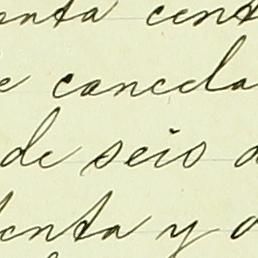 enta cent
e cancela
de seis d
tenta y o